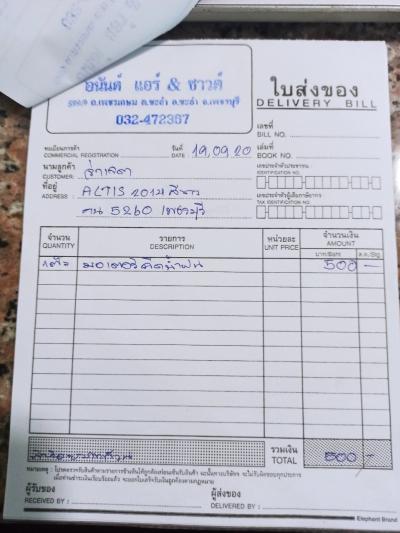 อนันต์ แอร์ & ซาวด์
ถ.เพชรเกษม ต.ชะอำ อ.ชะอำ จ.เพชรบุรี
032-472367
ใบส่งของ
DELIVERY BILL
เลขที่
BILL NO.
ทะเบียนการค้า
COMMERCIAL REGISTRATION
วันที่
DATE 19,09,20
เล่มที่
BOOK NO.
นามลูกค้า
CUSTOMER
เลขประจำตัวประชาชน
IDENTIFICATION NO.
ที่อยู่
ADDRESS : ALTIS 2012
เลขประจำตัวผู้เสียภาษีอากร
TAX IDENTIFICATION NO.
กน 5260 เพชรบุรี
จำนวน
QUANTITY
รายการ
DESCRIPTION
หน่วยละ
UNIT PRICE
จำนวนเงิน
AMOUNT
บาท/Baht
ส.ต./Stg.
มอเตอร์ฉีดน้ำฝน 500 -
รวมเงิน
TOTAL
500 -
หมายเหตุ : โปรดตรวจรับสินค้าตามรายการข้างต้นให้ถูกต้องก่อนเซ็นรับสินค้า
ผู้รับของ
RECEIVED BY :
ผู้ส่งของ
DELIVERED BY :
Elephant Brand